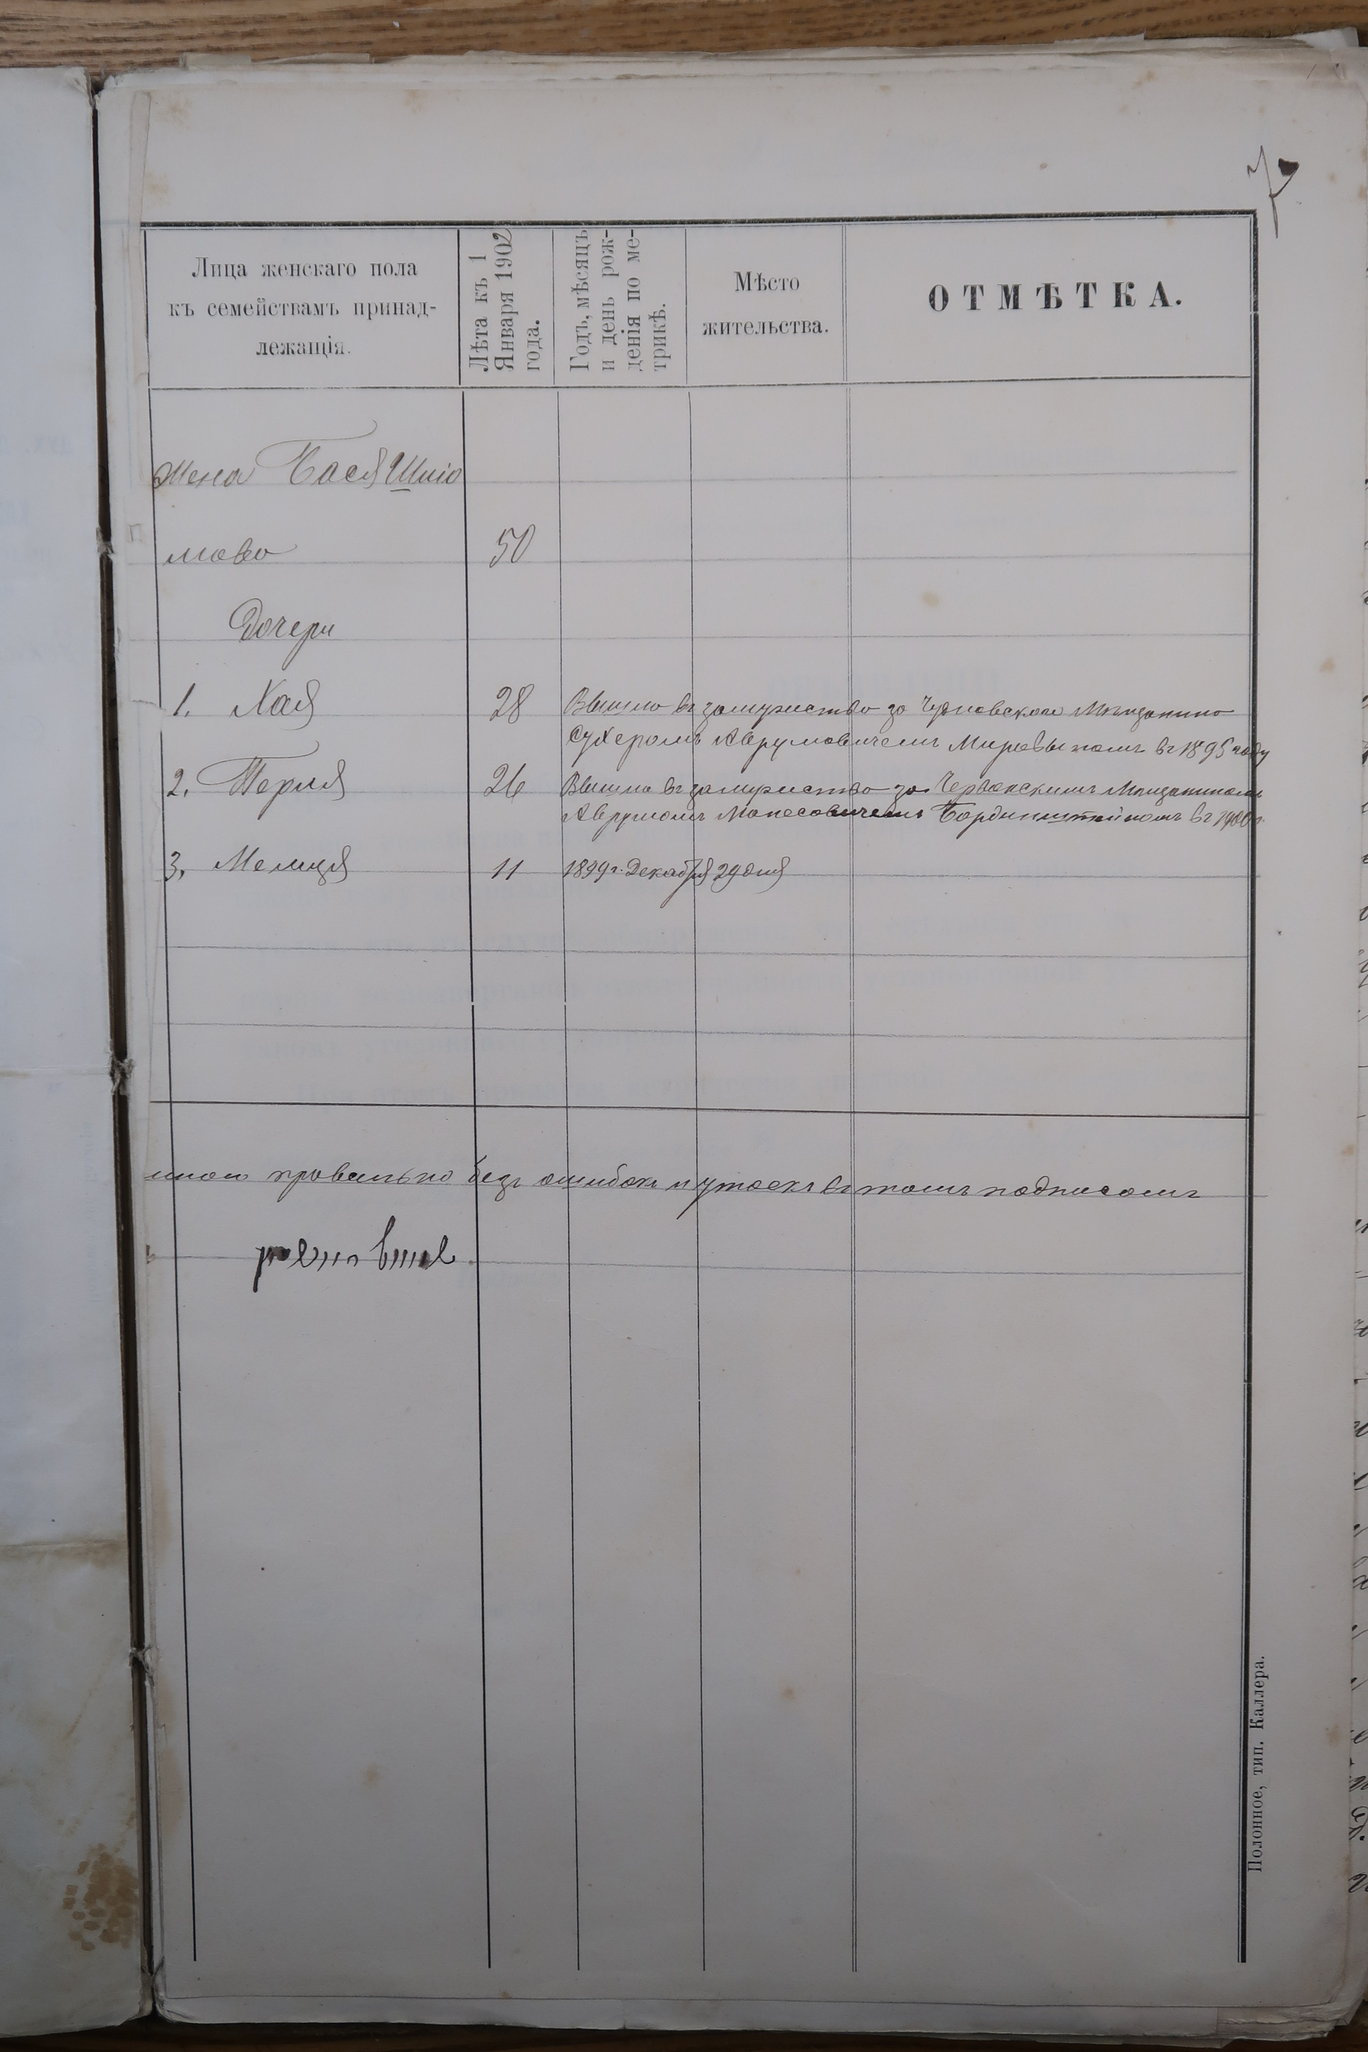 7
Лица женскаго пола
къ семействамъ принад-
лежащія.
Лѣта къ 1
Января 1902
года.
Годъ, мѣсяцъ
и день рож-
денія по ме-
трикѣ.
Мѣсто
жительства.
ОТМѢТКА.
Жена Бася Шлiо
мова 50
Дочери
1. Хая 28 Вышла въ замужество за Чудновскаго Мѣщанина
Аврумовичемъ въ 1895 году
2. Перля 26 Вышла въ замужество за Мѣщаниномъ
Аврумомъ въ 1900 г
3. 11 1899 г. Декабря 29 дня
правильно безъ ошибокъ и утаекъ въ томъ подписомъ
Полонное, тип. Каллера.